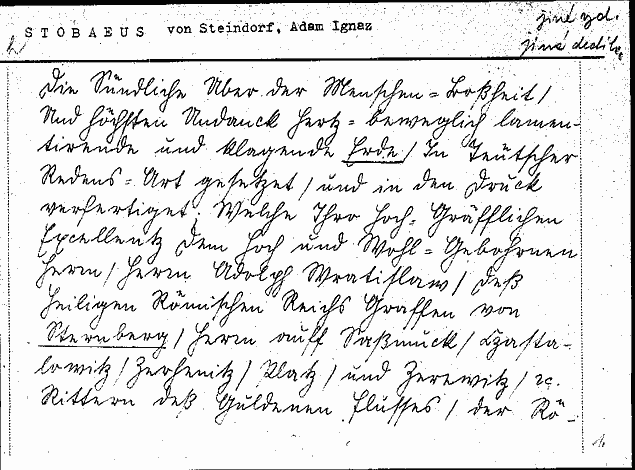 STOBAEUS von Steindorf, Adam Ignaz
jiné vyd.
jiná dedik.
Die Sündliche Uber der Menschen = Boßheit /
Und höchsten Undanck Hertz = beweglich lamen-
tirende und klagende Erde / In Teütscher
Redens = Art gesetzet / und in den Druck
verfertiget. Welche Ihro Hoch = Gräfflichen
Excellentz Dem Hoch und Wohl = Gebohrnen
Herrn / Herrn Adolph Wratislaw / deß
Heiligen Römischen Reichs Graffen von
Sternberg / Herrn auff Saßmuck / Czasta-
lowitz / Zerhenitz / Platz / und Zerewitz / ꝛc.
Rittern deß Guldenen Flusses / der Rö-
1.